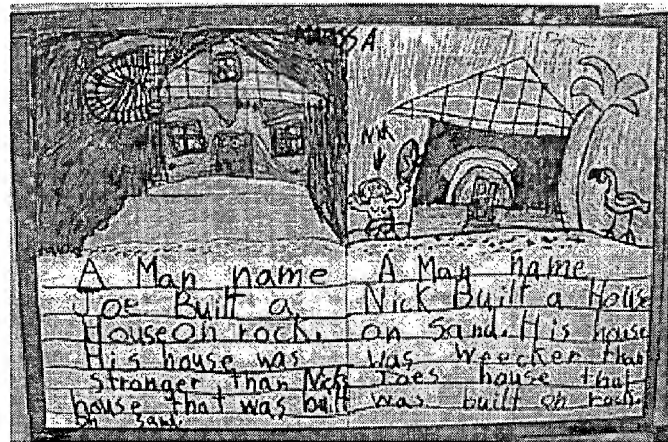 A Man name
Joe Built a
House on rock.
His house was
Stronger than Nicks
house that was built
on sand.
Nick
A Man name
Nick Built a House
on Sand. His house
was Weecker than
Joes house that
was built on rock.